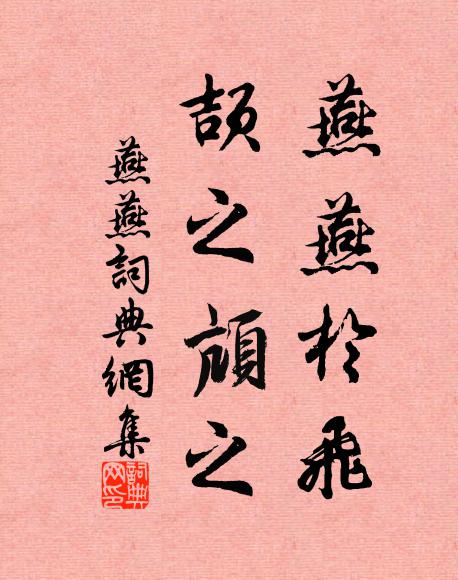 燕燕於飛
頡之頏之
燕燕詞典網集
詞典网印